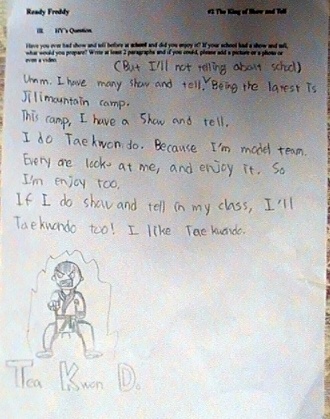 Ready Freddy #2 The King of Show and Tell
III. HY's Question
Have you ever had show and tell before at school and did you enjoy it? If your school had a show and tell,
what would you prepare? Write at least 2 paragraphs and if you could, please add a picture or a photo or
even a video.
(But I'll not telling about school)
Umm. I have many show and tell. Being the latest is
Jilimountain camp.
This camp, I have a Show and tell.
I do Taekwondo. Because I'm model team.
Every one looks at me, and enjoy it. So
I'm enjoy too.
If I do show and tell in my class, I'll
Taekwondo too! I like Taekwondo.
Tea Kwon D.